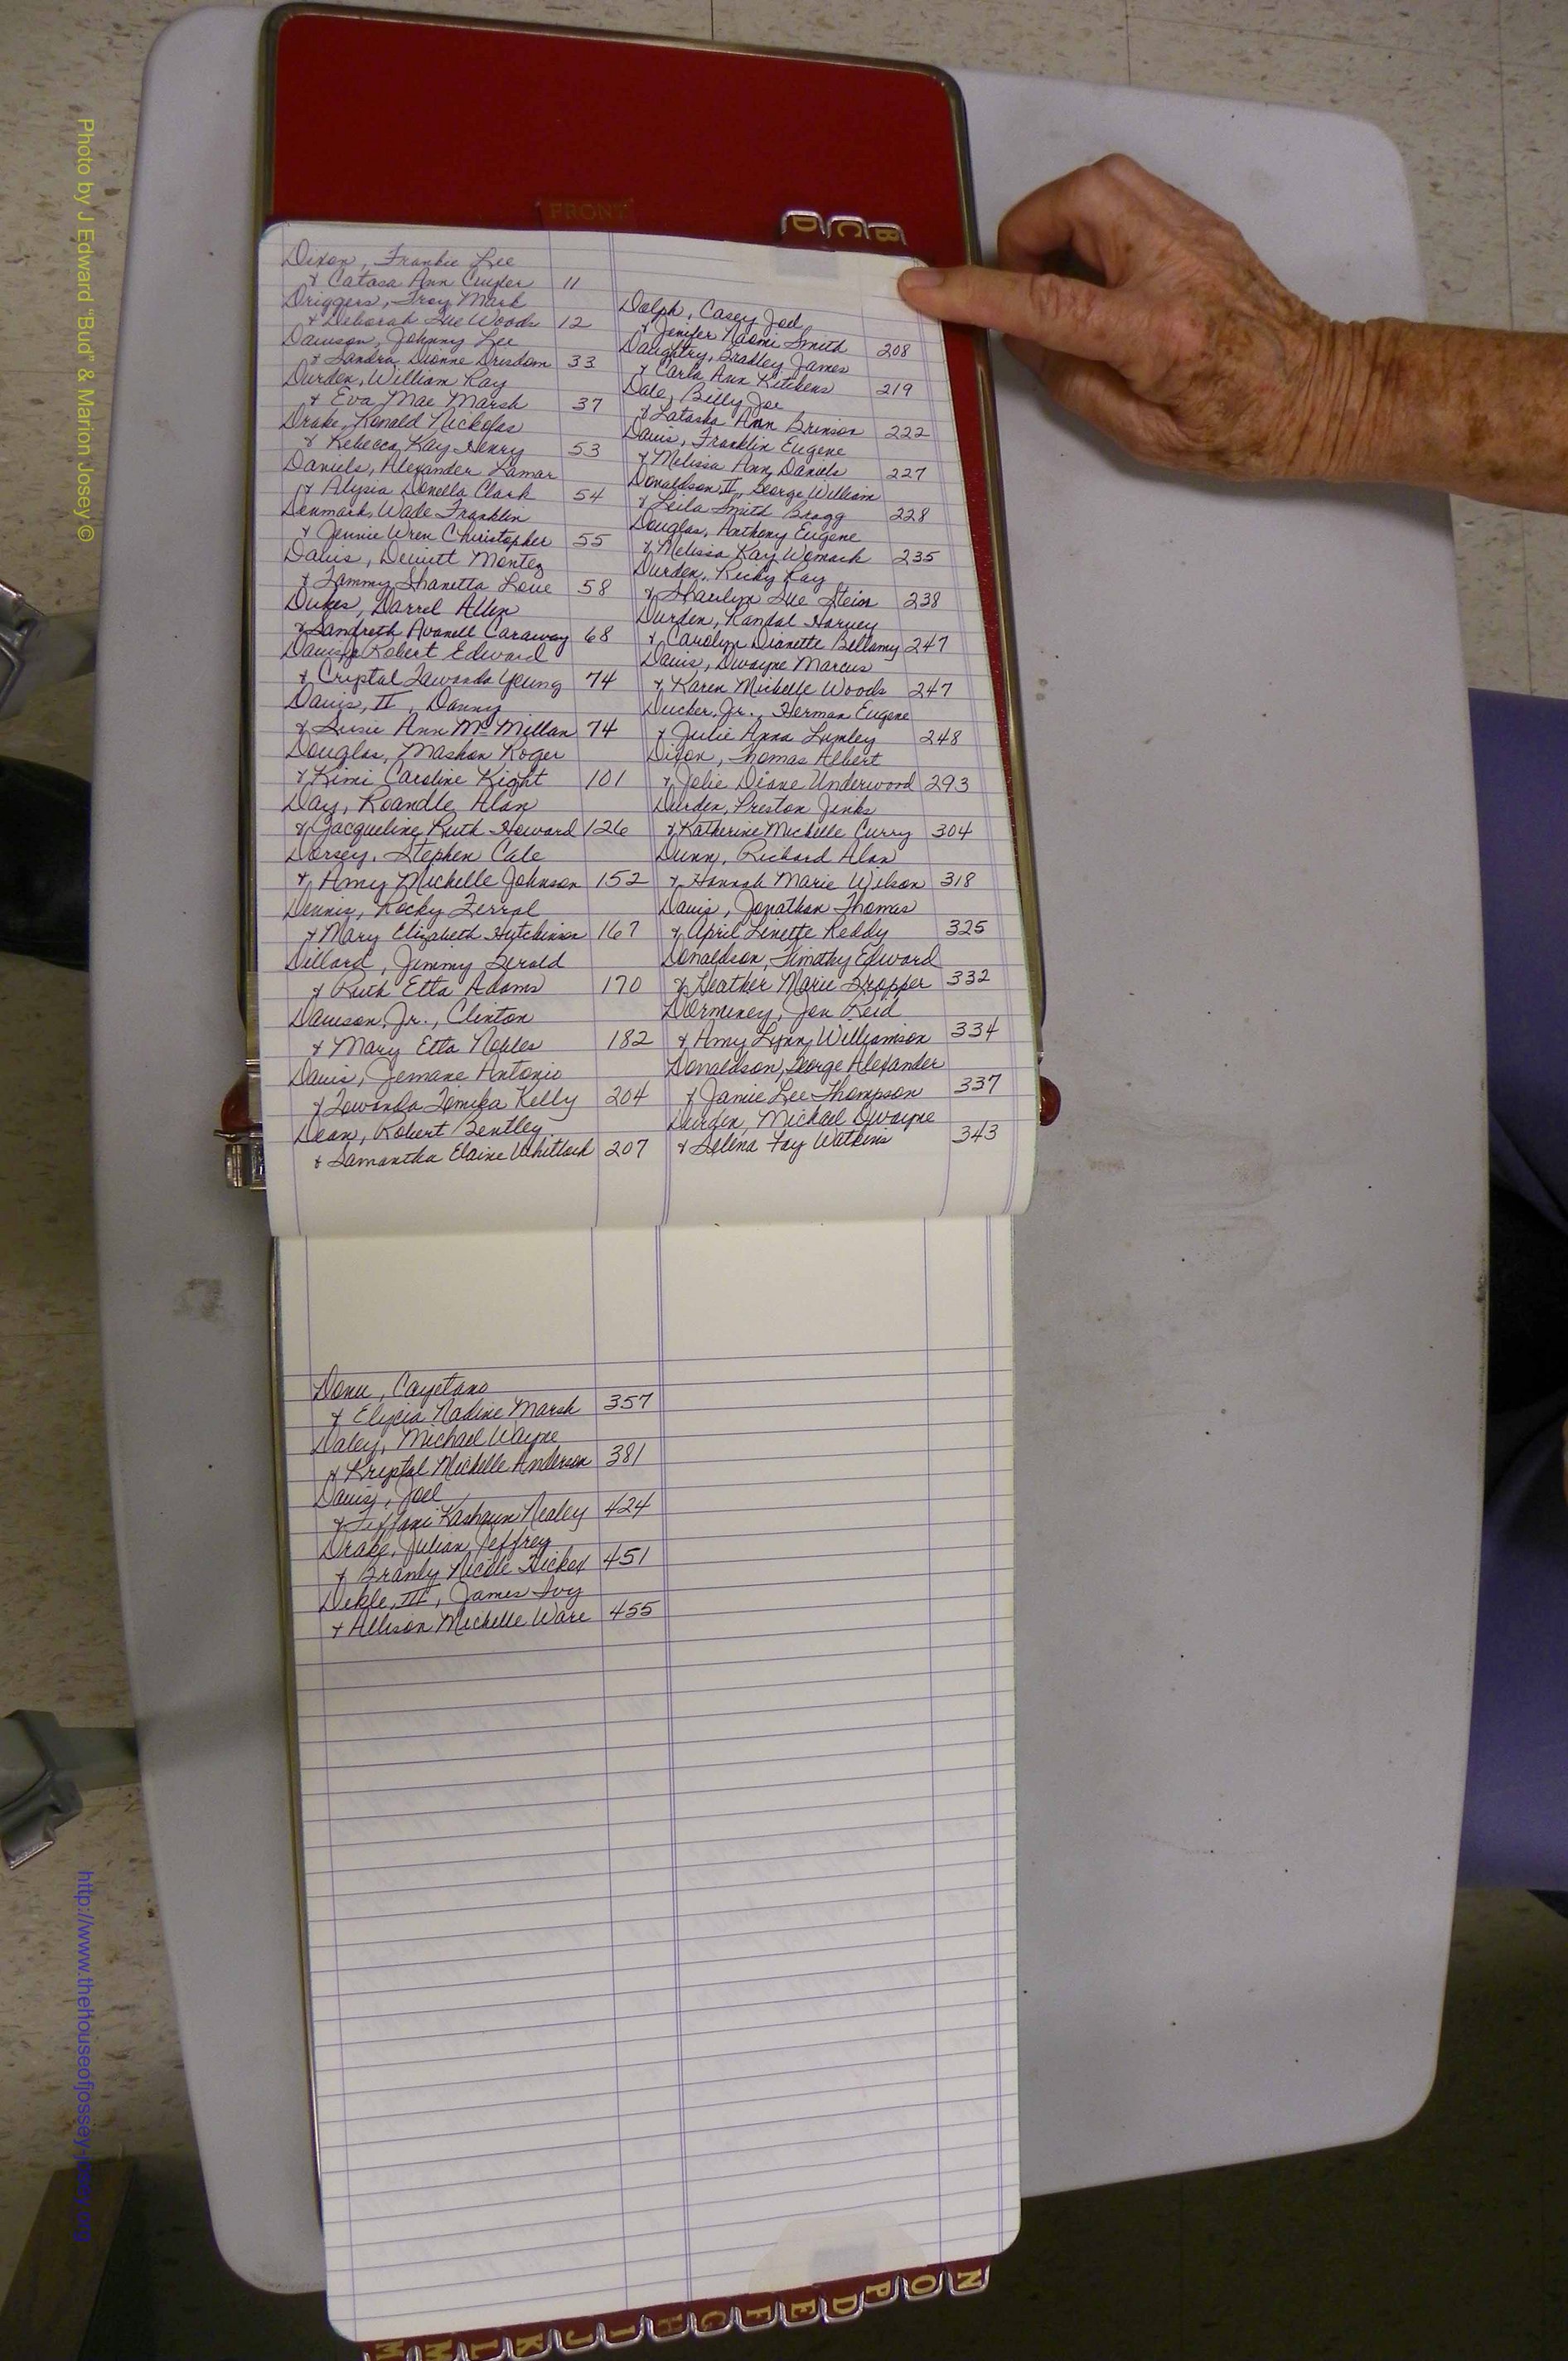 FRONT
B
C
D
Dixon, Frankie Lee
& Catasa Ann Cuyler 11
Driggers, Troy Mark
& Deborah Sue Woods 12
Dawson, Johnny Lee
& Sandra Dionne Drisdom 33
Durden, William Ray
& Eva Mae Marsh 37
Drake, Ronald Nickolas
& Rebecca Kay Henry 53
Daniels, Alexander Lamar
& Alysia Donella Clark 54
Denmark, Wade Franklin
& Jennie Wren Christopher 55
Davis, Dewitt Montez
& Tammy Shanetta Love 58
Dukes, Darrel Allen
& Sandreth Avanell Caraway 68
Davis, Robert Edward
& Crystal Lawanda Young 74
Davis, II, Danny
& Susie Ann McMillan 74
Douglas, Mashon Roger
& Kimi Caroline Kight 101
Day, Roandle Alan
& Jacqueline Ruth Howard 126
Dorsey, Stephen Cale
& Amy Michelle Johnson 152
Dennis, Rocky Ferral
& Mary Elizabeth Hutchinson 167
Dillard, Jimmy Gerald
& Ruth Etta Adams 170
Dawson, Jr., Clinton
& Mary Etta Nobles 182
Davis, Jemane Antonio
& Towanda Tomika Kelly 204
Dean, Robert Bentley
& Samantha Elaine Whitlock 207
Dolph, Casey Joel
& Jenifer Naomi Smith 208
Daughtry, Bradley James
& Carla Ann Kitchens 219
Dale, Billy Joe
& Latasha Ann Brinson 222
Davis, Franklin Eugene
& Melissa Ann Daniels 227
Donaldson, II, George William
& Leila Smith Bragg 228
Douglas, Anthony Eugene
& Melissa Kay Womack 235
Durden, Ricky Ray
& Sharlyn Sue Stein 238
Durden, Randal Harvey
& Carolyn Dianette Bellamy 247
Davis, Dwayne Marcus
& Karen Michelle Woods 247
Ducker, Jr., Herman Eugene
& Julie Anna Lumley 248
Dixon, Thomas Albert
& Jolie Diane Underwood 293
Durden, Preston Jenks
& Katherine Michelle Curry 304
Dunn, Richard Alan
& Hannah Marie Wilson 318
Davis, Jonathan Thomas
& April Linette Reddy 325
Donaldson, Timothy Edward
& Heather Marie Dropper 332
Dorminey, Jon Reid
& Amy Lynn Williamson 334
Donaldson, George Alexander
& Jamie Lee Thompson 337
Durden, Michael Dwayne
& Selena Fay Watkins 343
Donu, Cayetano
& Elycia Nadine Marsh 357
Daley, Michael Wayne
& Krystal Michelle Anderson 381
Davis, Joel
& Tiffani Kashaun Nealey 424
Drake, Julian Jeffrey
& Brandy Nicole Hickox 451
Dekle, III, James Ivy
& Allison Michelle Ware 455
M
M
L
K
J
I
H
G
F
E
D
P
O
N
Photo by J Edward "Bud" & Marion Josey ©
http://www.thehouseofjossey-josey.org